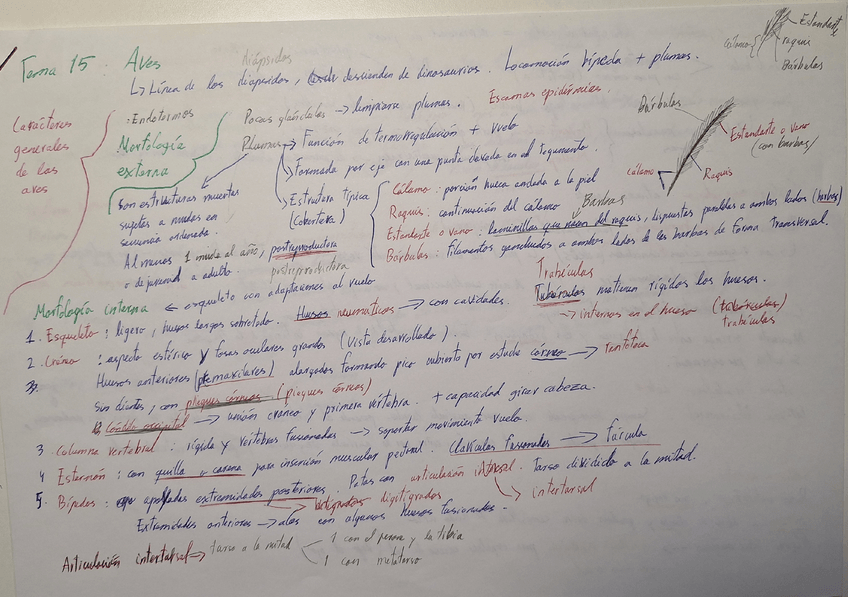 Estandarte
Cálamo
raquis
Bárbulas
Tema 15. Aves
Diápsidos
Línea de los diapsidos, descienden de dinosaurios. Locomoción bípeda + plumas.
Caracteres generales de las aves
· Endotermos
Pocas glándulas → limpiarse plumas. Escamas epidérmicas.
Morfología externa
Plumas → Función de termorregulación + vuelo
→ Formada por eje con una punta clavada en el tegumento.
→ Estructura típica (cobertera)
Cálamo: porción hueca anclada a la piel
Raquis: continuación del cálamo
Barbas
Estandarte o vano: laminillas que nacen del raquis, dispuestas paralelas a ambos lados (barbas)
Bárbulas: filamentos ganchudos a ambos lados de las barbas de forma transversal.
Bárbulas
Estandarte o vano
(con barbas)
Cálamo
Raquis
Son estructuras muertas
sujetas a mudas en
secuencia ordenada.
Al menos 1 muda al año, postreproductora
o de juvenil a adulto. postreproductora
Morfología interna ← esqueleto con adaptaciones al vuelo
Trabéculas
1. Esqueleto: ligero, huesos largos sobretodo. Huesos neumáticos → con cavidades. Trabéculas mantienen rígidos los huesos.
→ internas en el hueso (trabéculas)
trabéculas
2. Cráneo: aspecto esférico y fosas oculares grandes (vista desarrollada).
Huesos anteriores (premaxilares) alargados formando pico cubierto por estuche córneo → ranfoteca
Sin dientes, con pliegues córneos (pliegues córneos)
Cóndilo occipital → unión cráneo y primera vértebra. + capacidad girar cabeza.
3 Columna vertebral: rígida y vértebras fusionadas → soportar movimiento vuelo.
4 Esternón: con quilla o carena para inserción muscular pectoral. Clavículas fusionadas → fúrcula
5. Bípedos: apoyadas extremidades posteriores. Patas con articulación intertarsal. Tarso dividido a la mitad.
→ digitígrados
→ intertarsal
Extremidades anteriores → alas con algunos huesos fusionados.
Articulación intertarsal → tarso a la mitad
1 con el peroné y la tibia
1 con metatarso